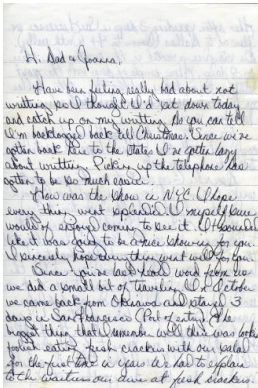 Hi Dad & Joanna,
Have been feeling really bad about not
writting so I thought I'd set down today
and catch up on my writting. As you can tell
I'm backlogged back till Christmas. Since we've
gotten back to the States I've gotten lazy
about writting. Picking up the telephone has
gotten to be so much easier.
How was the show in NYC. I hope
every thing went splended. I myself sure
would of enjoyed coming to see it. It sounded
like it was going to be a nice showing for you.
I sincerely hope everything went well for you.
Since you've last heard word from us
we did a small bit of traveling. In October
we came back from Okinawa and stayed 3
days in San Francisco (Port of entry). The
biggest thing that I remember well there was
fresh crackers with our salad
for the first time in years. We had to explain
to the waitress our awe at fresh crackers.